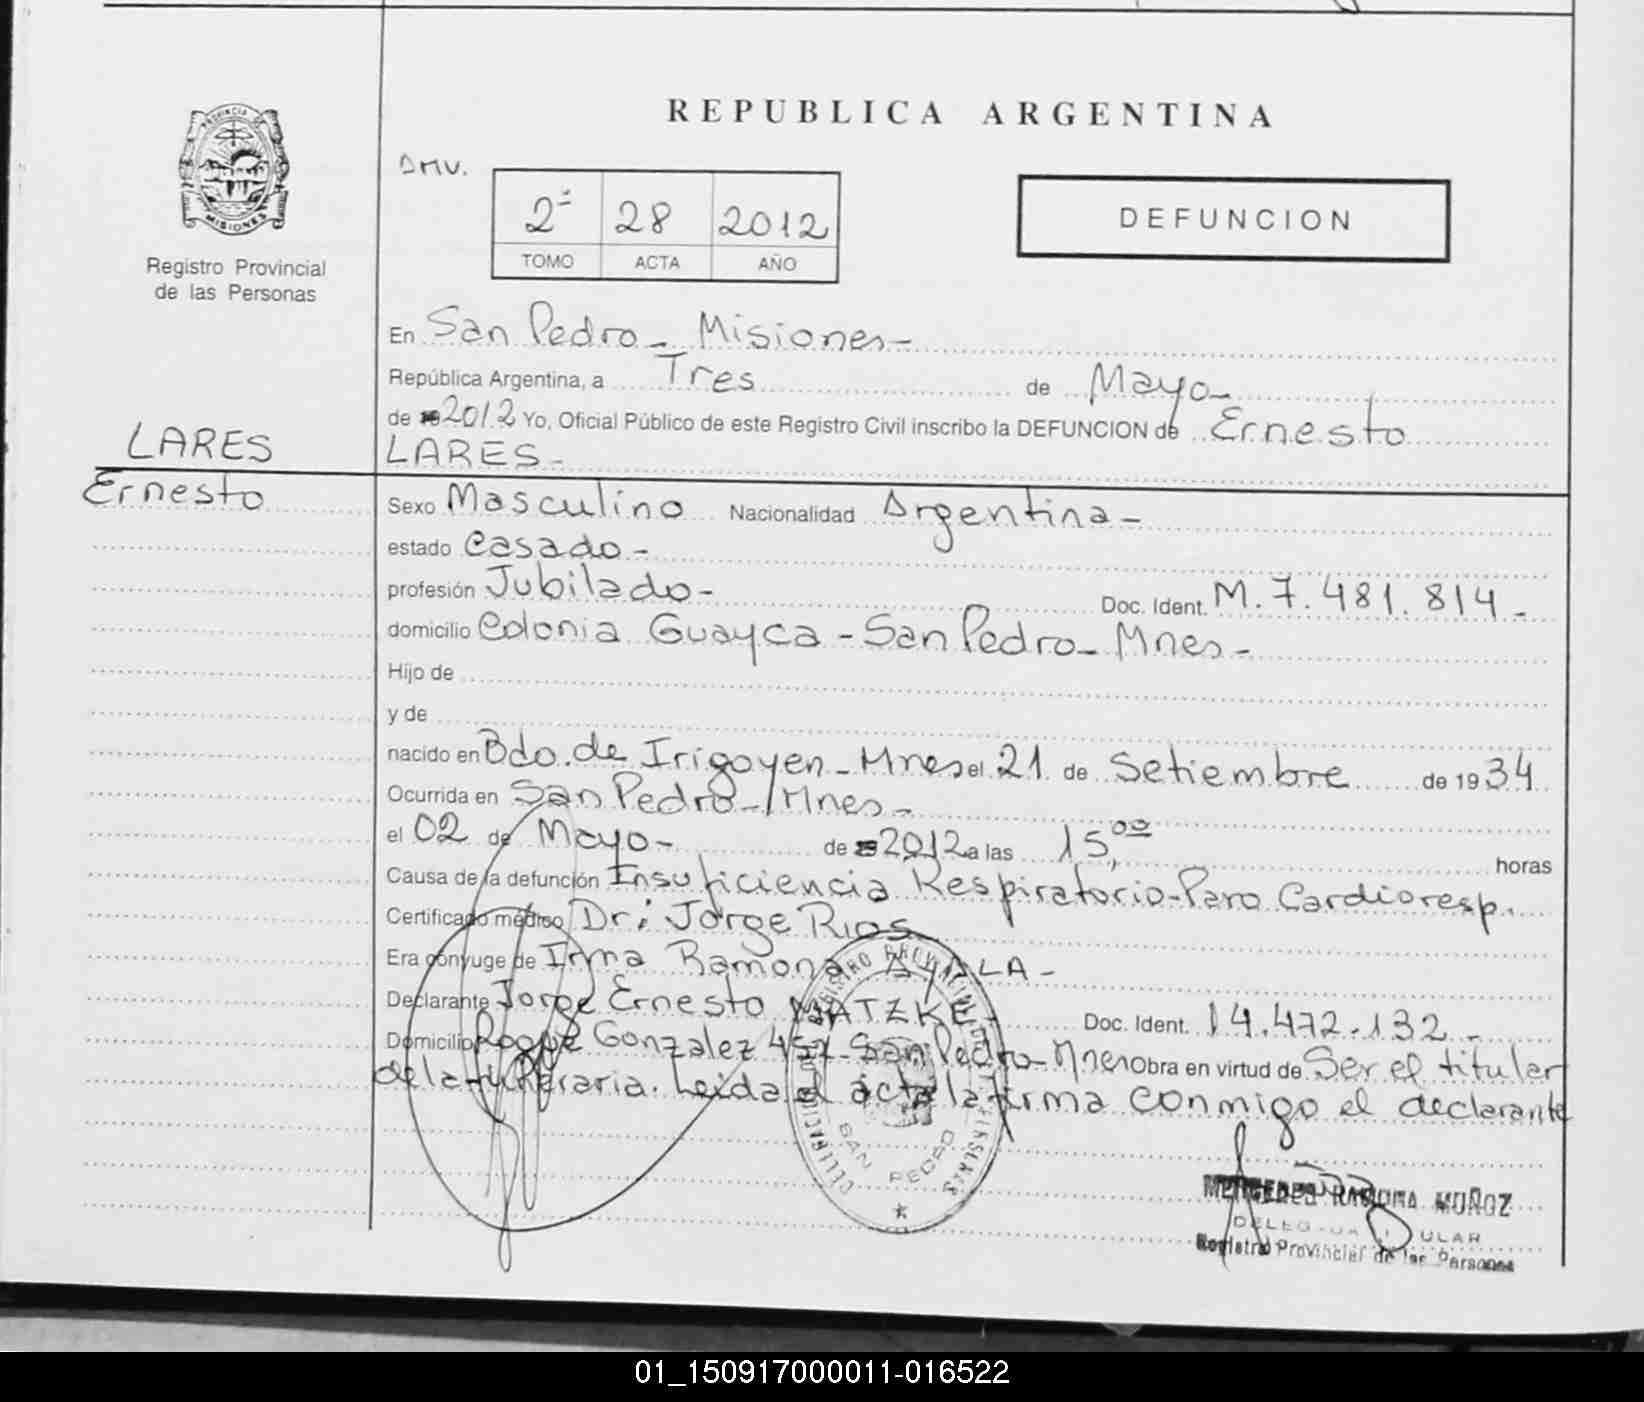 REPUBLICA ARGENTINA
PROVINCIA DE
MISIONES
Registro Provincial
de las Personas
2º 28 2012
TOMO ACTA AÑO
DEFUNCION
En San Pedro - Misiones -
República Argentina, a Tres de Mayo -
de 2012 Yo, Oficial Público de este Registro Civil inscribo la DEFUNCION de Ernesto
LARES LARES -
Ernesto
Sexo Masculino Nacionalidad Argentina -
estado Casado -
profesión Jubilado - Doc. Ident. M. 7.481.814 -
domicilio Colonia Guayca - San Pedro - Mnes -
Hijo de
y de
nacido en Bdo. de Irigoyen - Mnes el 21 de Setiembre de 1934
Ocurrida en San Pedro - Mnes -
el 02 de Mayo - de 2012 a las 15,00 horas
Causa de la defunción Insuficiencia Respiratorio - Paro Cardioresp.
Certificado médico Dr: Jorge Rios
Era cónyuge de Irma Ramona AYALA -
Declarante Jorge Ernesto MATZKE - Doc. Ident. 14.472.132 -
Domicilio Roque Gonzalez 457 - San Pedro - Mnes Obra en virtud de Ser el titular
de la funeraria. Leida el acta la firma conmigo el declarante
REGISTRO PROVINCIAL DE
SAN PEDRO
MERCEDES RAMONA MUÑOZ
Registro Provincial de las Personas
01_150917000011-016522